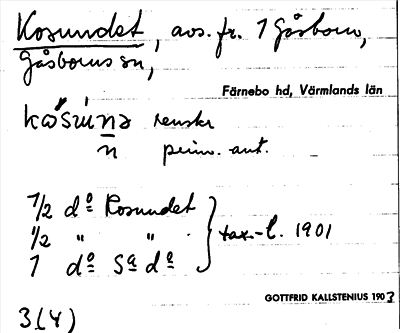 Kosundet, avs. fr. 1 Gåsborn,
Gåsborns sn,
Färnebo hd, Värmlands län
n prim. ant.
1/2 dº Kosundet
1/2 " "
1 dº Sª dª
tax.-l. 1901
GOTTFRID KALLSTENIUS 1903
3(4)